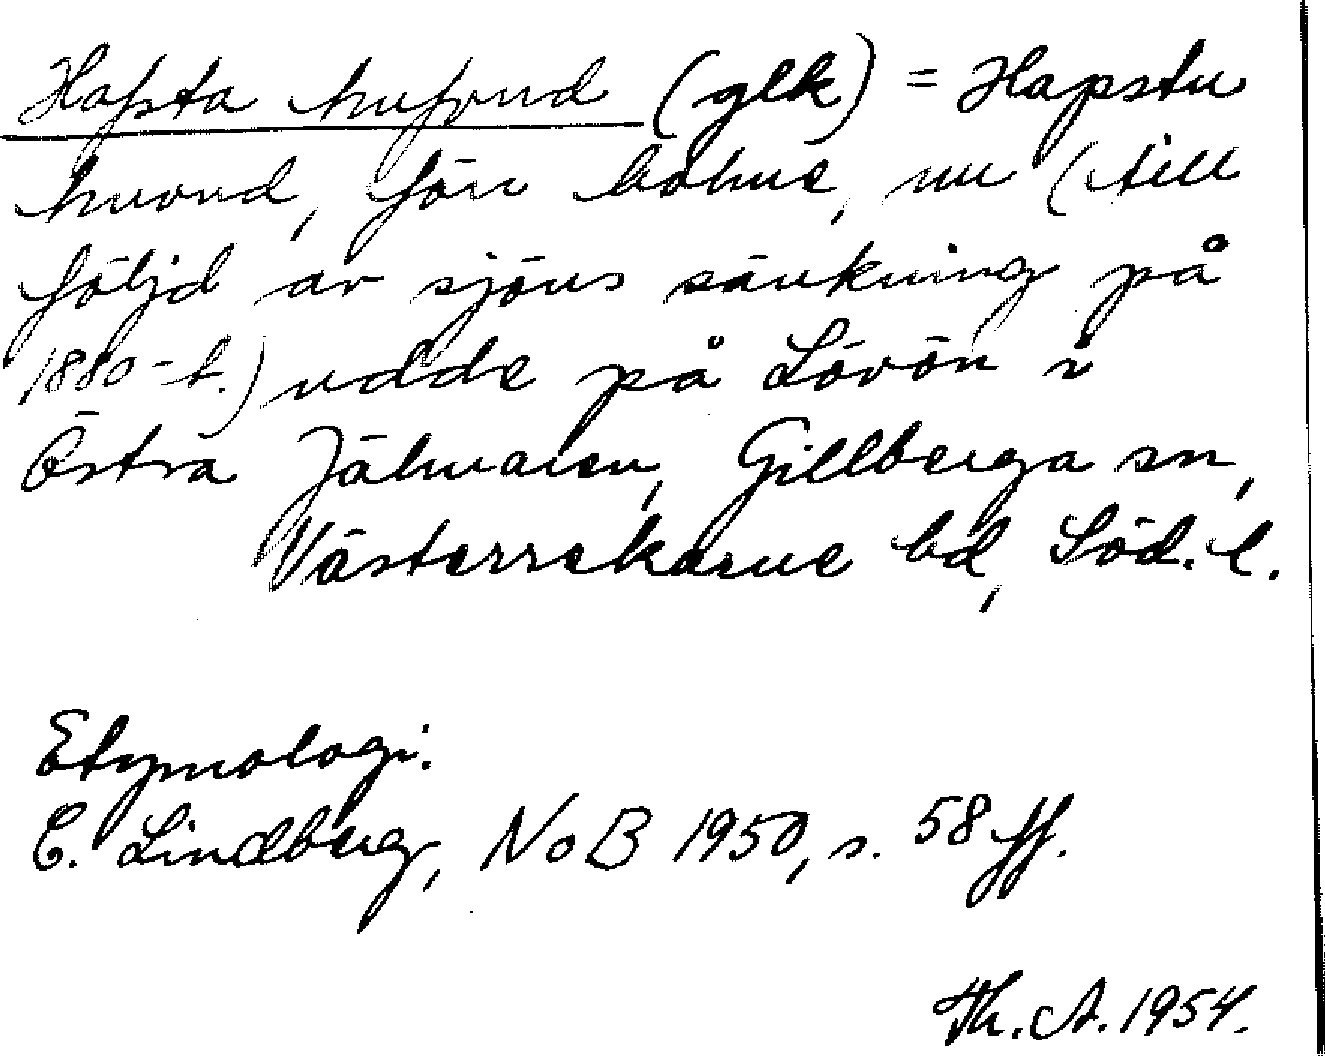 Hapsta hufvud (glk) = Hapstu
huvud, förr holme, nu (till
följd av sjöns sänkning på
1880-t.) udde på Lövön i
Östra Hjälmaren, Gillberga sn,
Västerrekarne hd, Söd. l.
Etymologi:
C. Lindberg, NoB 1950, s. 58 ff.
Th. A. 1954.